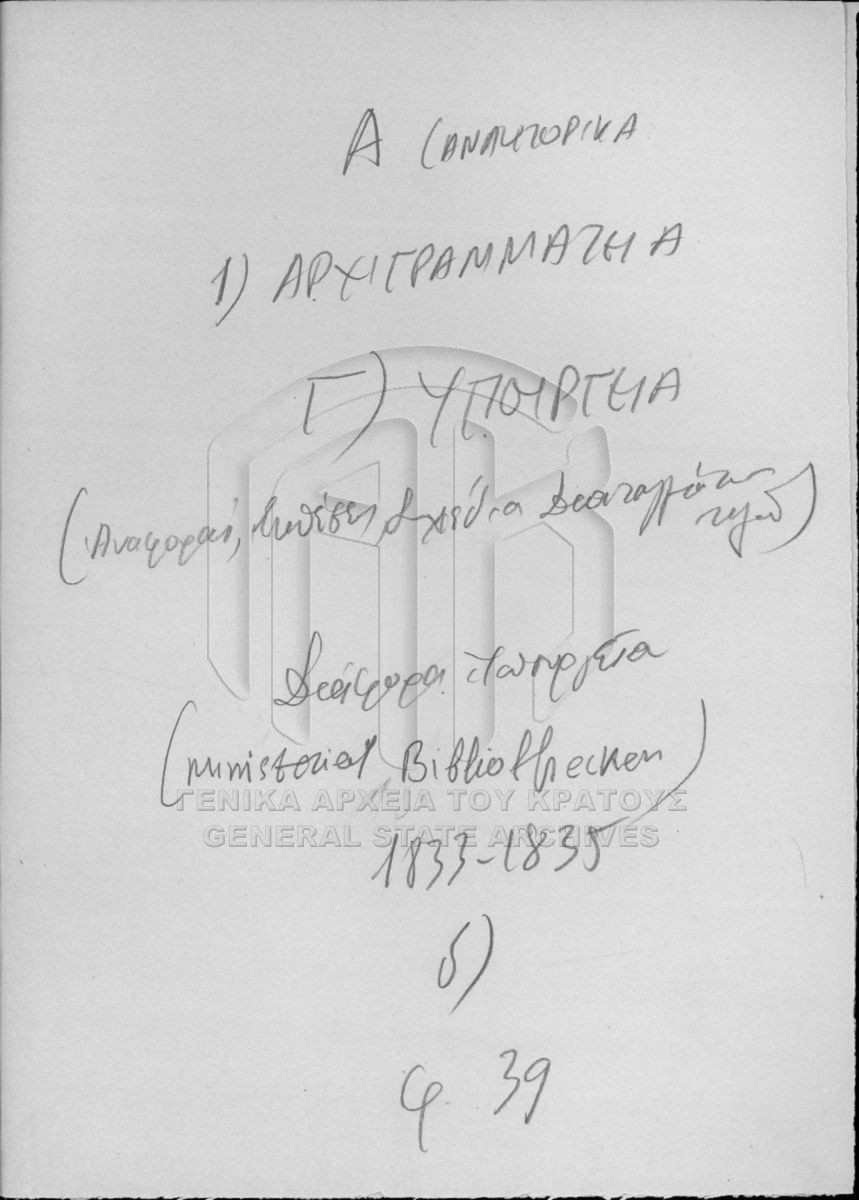 Α (ΑΝΑΚΤΟΡΙΚΑ
1) ΑΡΧΙΓΡΑΜΜΑΤΕΙΑ
Γ) ΥΠΟΥΡΓΕΙΑ
(Αναφορές, Εκθέσεις, Σχέδια Διαταγμάτων
κλπ)
Διάφορα Υπουργεία
(Ministerial Bibliothecken)
ΓΕΝΙΚΑ ΑΡΧΕΙΑ ΤΟΥ ΚΡΑΤΟΥΣ
GENERAL STATE ARCHIVES
1833-1835
δ)
φ. 39